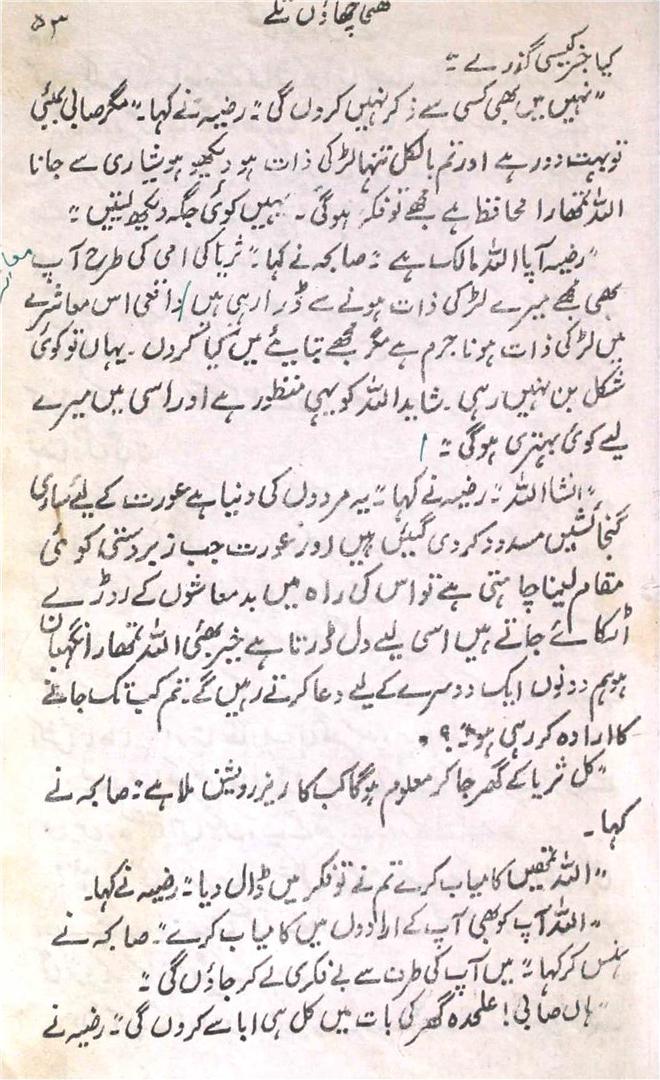 گھنی چھاؤں تلے ۵۳
کیا خبر کیسی گذرے ۔"
"نہیں میں بھی کسی سے ذکر نہیں کروں گی ۔" رضیہ نے کہا ۔" مگر صابی بمبئی
تو بہت دور ہے اور تم بالکل تنہا لڑکی ذات ہو دیکھو ہوشیاری سے جانا
اللہ تمھارا محافظ ہے مجھے تو فکر ہوگی ۔ یہیں کوئی جگہ دیکھ لیتیں ۔"
"رضیہ آپا اللہ مالک ہے ۔" صابحہ نے کہا ۔" ثریا کی امی کی طرح آپ
بھی مجھے میرے لڑکی ذات ہونے سے ڈرا رہی ہیں / واقعی اس معاشرے
میں لڑکی ذات ہونا جرم ہے مگر مجھے بتایئے میں کیا کروں ۔ یہاں تو کوئی
شکل بن نہیں رہی ۔ شاید اللہ کو یہی منظور ہے اور اسی میں میرے
لیے کوئی بہتری ہوگی ۔"
"انشا اللہ ۔" رضیہ نے کہا ۔" یہ مردوں کی دنیا ہے عورت کے لئے ساری
گنجائشیں مسدود کردی گیئں ہیں اور عورت جب زبردستی کوئی
مقام لینا چاہتی ہے تو اس کی راہ میں بدمعاشوں کے روڑے
اٹکائے جاتے ہیں اسی لیے دل ڈرتا ہے خیر بھئی اللہ تمھارا نگہبان
ہو ہم دونوں ایک دوسرے کے لیے دعا کرتے رہیں گے ۔ تم کب تک جانے
کا ارادہ کر رہی ہو ۔"؟
"کل ثریا کے گھر جاکر معلوم ہوگا کب کا ریزرویشن ملا ہے ۔" صابحہ نے
کہا ۔
"اللہ تمھیں کامیاب کرے تم نے تو فکر میں ڈال دیا ۔" رضیہ نے کہا ۔
"اللہ آپ کو بھی آپ کے ارادوں میں کامیاب کرے ۔" صابحہ نے
ہنس کر کہا ۔" میں آپ کی طرف سے بے فکری لے کر جاؤں گی ۔"
"ہاں صابی! علحدہ گھر کی بات میں کل ہی ابا سے کروں گی ۔" رضیہ نے